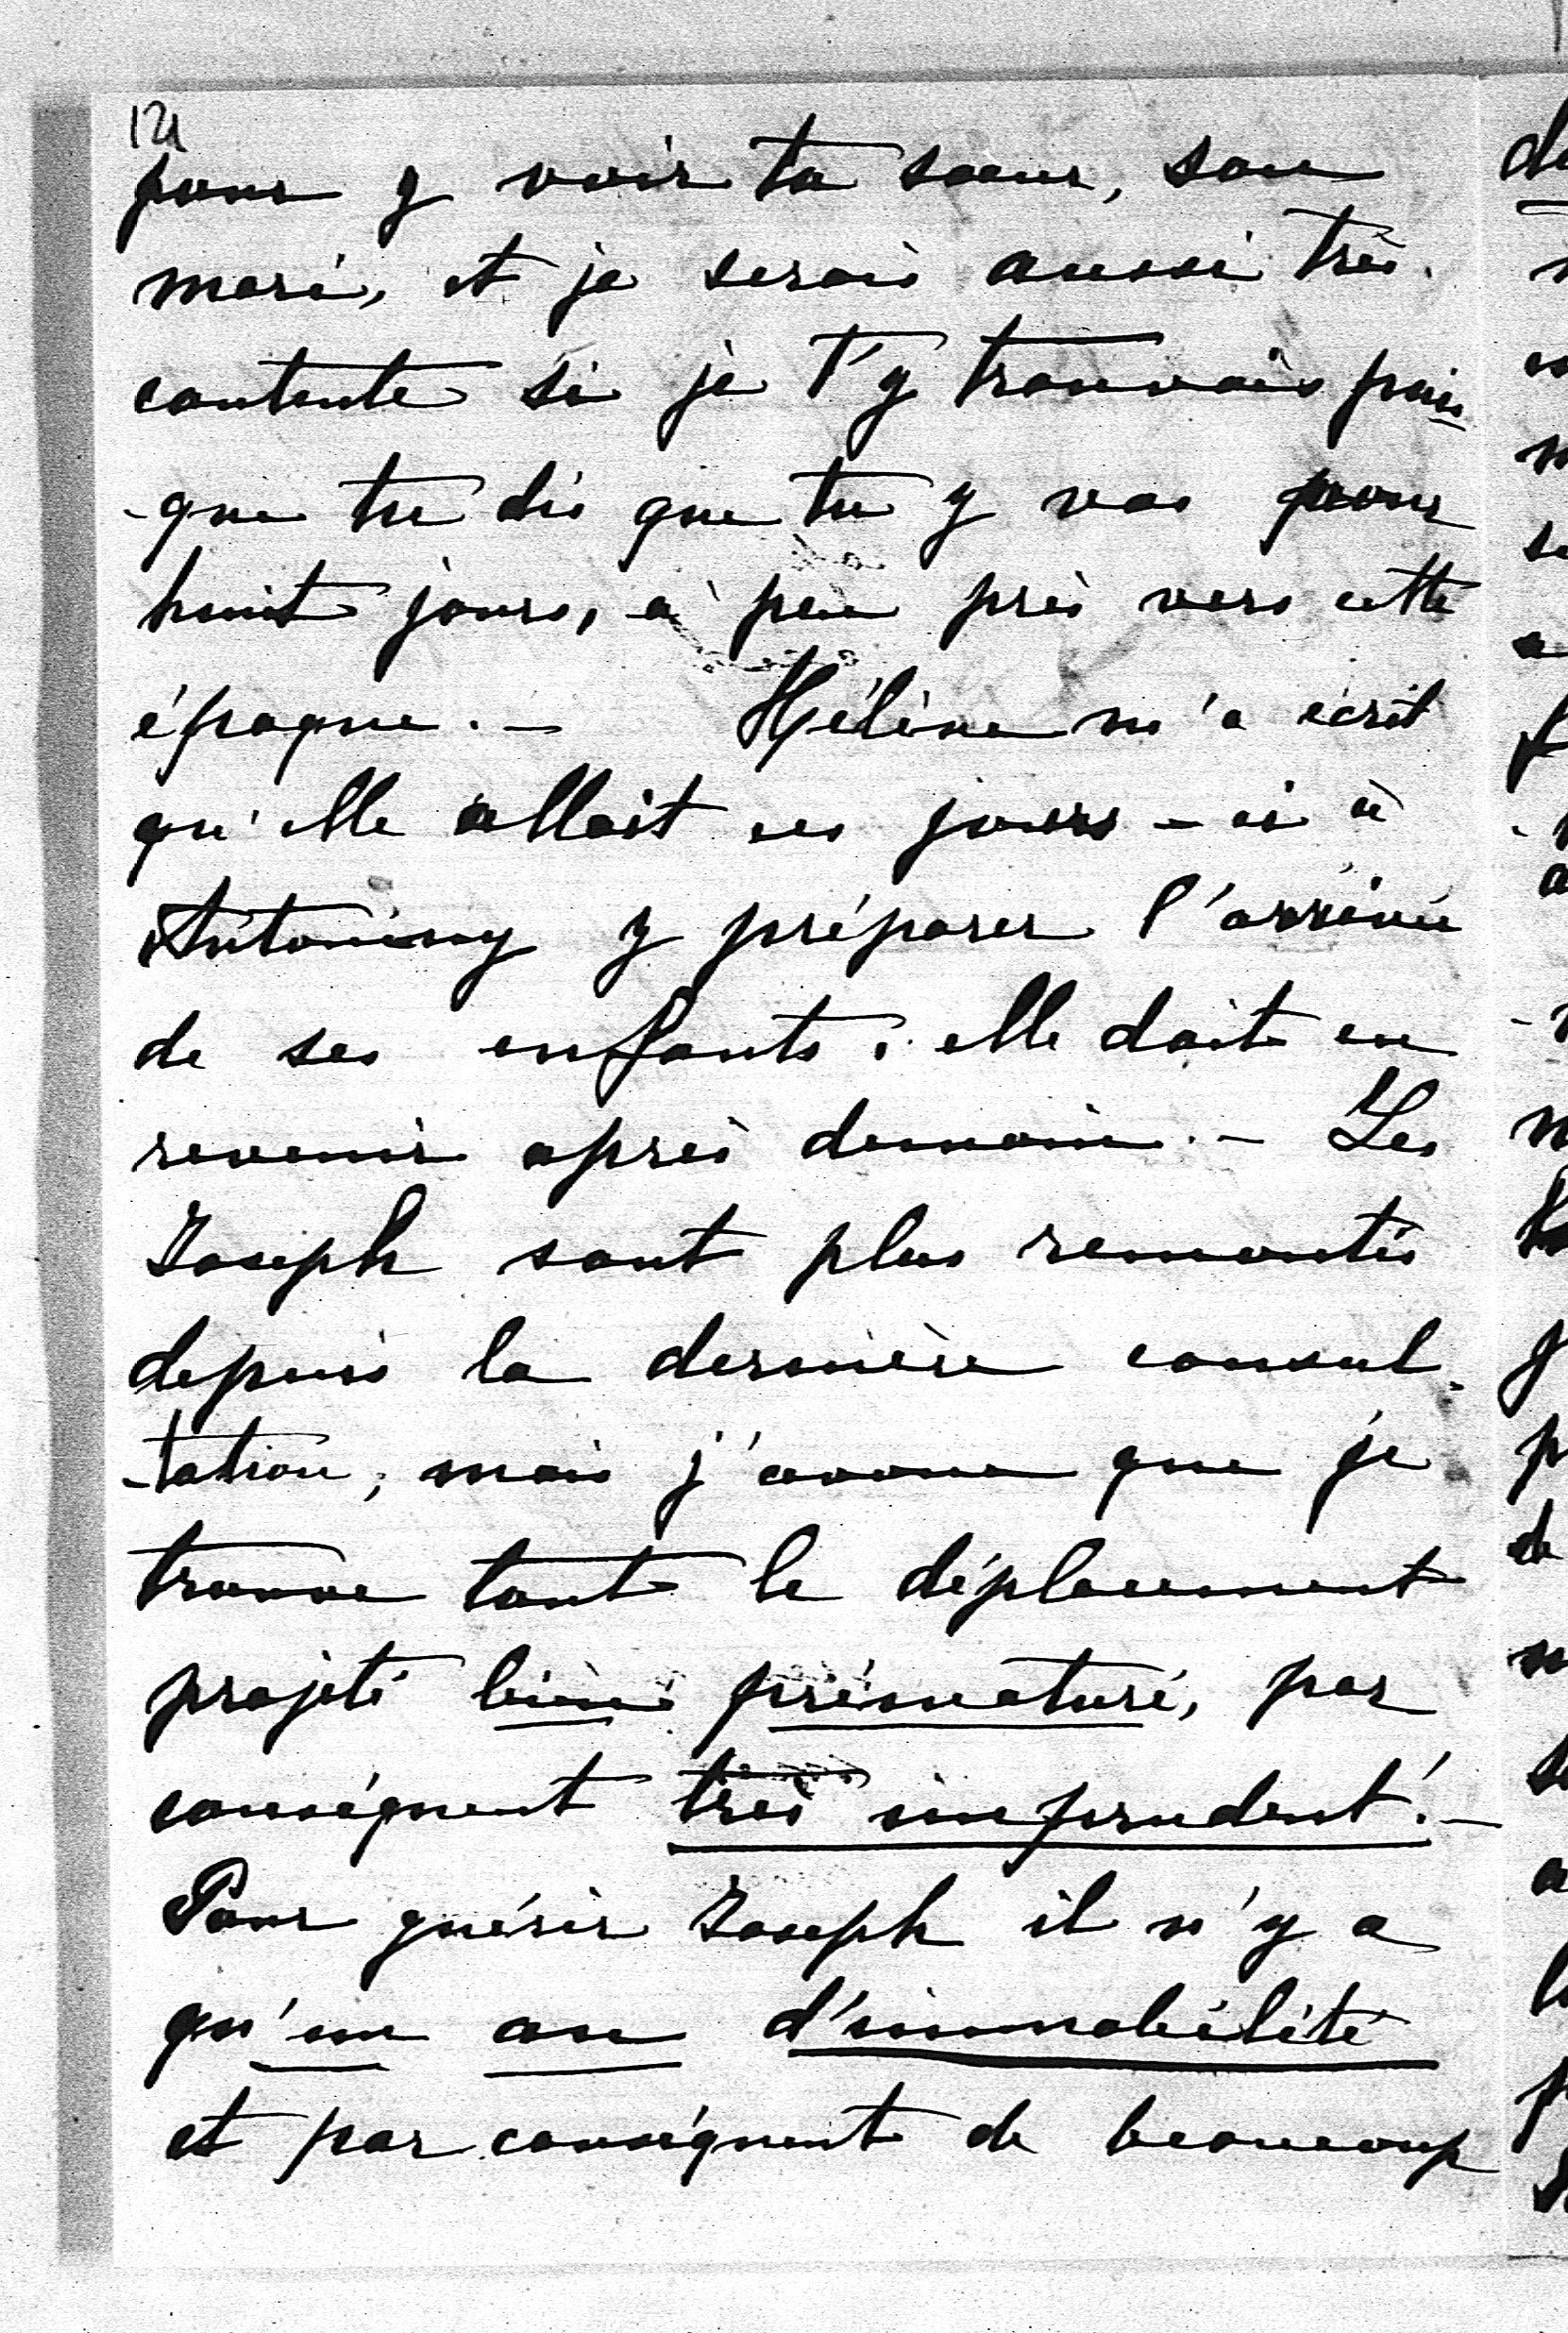 121
pour y voir ta sœur, son
mari, et je serais aussi très
contente si je t'y trouvais puis
-que tu dis que tu y vas pour
huit jours, à peu près vers cette
époque. — Hélène m'a écrit
qu'elle allait ces jours-ci à
Antoniny y préparer l'arrivée
de ses enfants; elle doit en
revenir après demain. — Les
Joseph sont plus remontés
depuis la dernière consul-
-tation, mais j'avoue que je
trouve tout le déplacement
projeté bien prématuré, par
conséquent très imprudent! —
Pour guérir Joseph il n'y a
qu'un an d'immobilité
et par conséquent de beaucoup